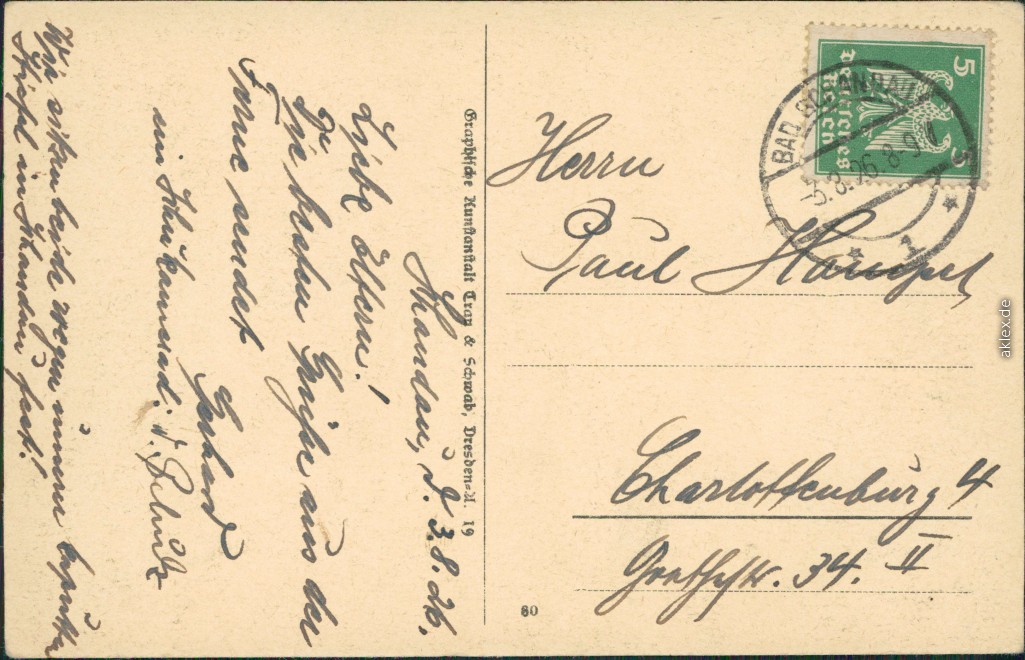 Schandau, d. 3.8.26.
Liebe Eltern!
Die besten Grüße aus der
Ferne sendet
Gerhard
ein Schulkamerad: F. Schulz
Wir sitzen beide wegen
in Schandau fest!
Graphische Kunstanstalt Trau & Schwab, Dresden-A. 19
5 5
Deutsches
Reich
BAD SCHANDAU
-3.8.26.8-9
1
Herrn
Paul Hampel
Charlottenburg 4
Goethestr. 34. II
80
aklex.de